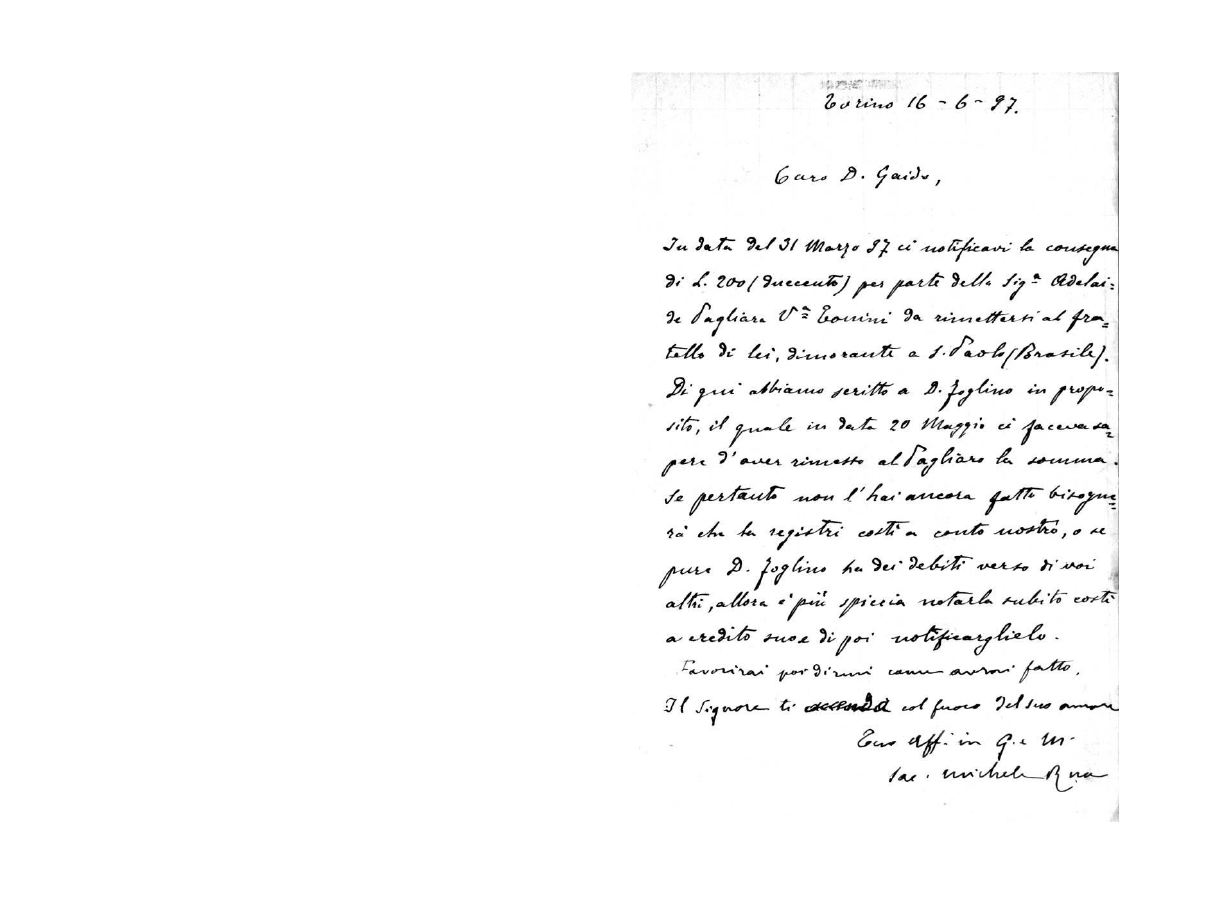 Torino 16 - 6 - 97.
Caro D. Gaido,
In data del 31 Marzo 97 ci notificavi la consegna
di L. 200 (duecento) per parte della Sig.ª Adelai=
de Pagliara V.ª Tonini da rimettersi al fra=
tello di lei, dimorante a S. Paolo (Brasile).
Di qui abbiamo scritto a D. Foglino in propo=
sito, il quale in data 20 Maggio ci faceva sa=
pere d'aver rimesso al Pagliaro la somma.
Se pertanto non l'hai ancora fatto bisogne=
rà che la registri costì a conto nostro, o se
pure D. Foglino ha dei debiti verso di voi
altri, allora è più spiccia notarla subito costì
a credito suo e di poi notificarglielo.
Favorirai poi dirmi come avrai fatto.
Il Signore ti accenda col fuoco del suo amore
Tuo aff. in G. e M.
Sac. Michele Rua